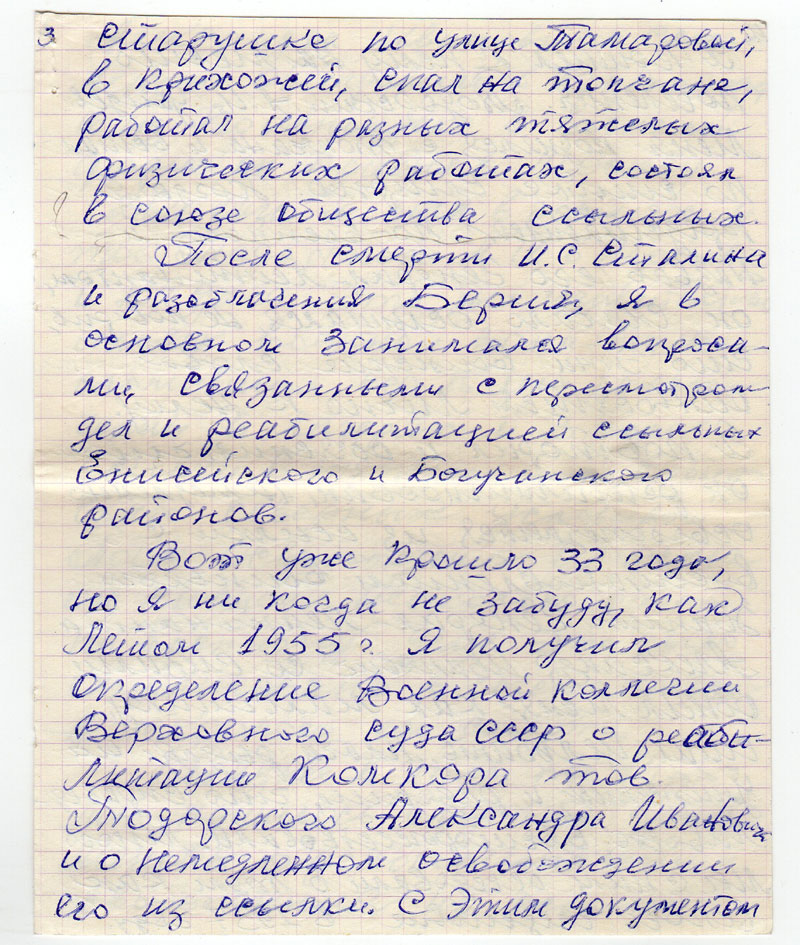 3
старушке по улице Тамаровой,
в прихожей, спал на топчане,
работал на разных тяжелых
физических работах, состоял
в союзе общества ссыльных.
После смерти И.С. Сталина
и разоблачения Берия, я в
основном занимался вопроса-
ми, связанными с пересмотром
дел и реабилитацией ссыльных
Енисейского и Богучанского
районов.
Вот уже прошло 33 года,
но я ни когда не забуду, как
летом 1955 г. я получил
определение Военной коллегии
Верховного суда СССР о реаби-
литации Комкора тов.
Тодорского Александра Ивановича
и о немедленном освобождении
его из ссылки. С этим документом